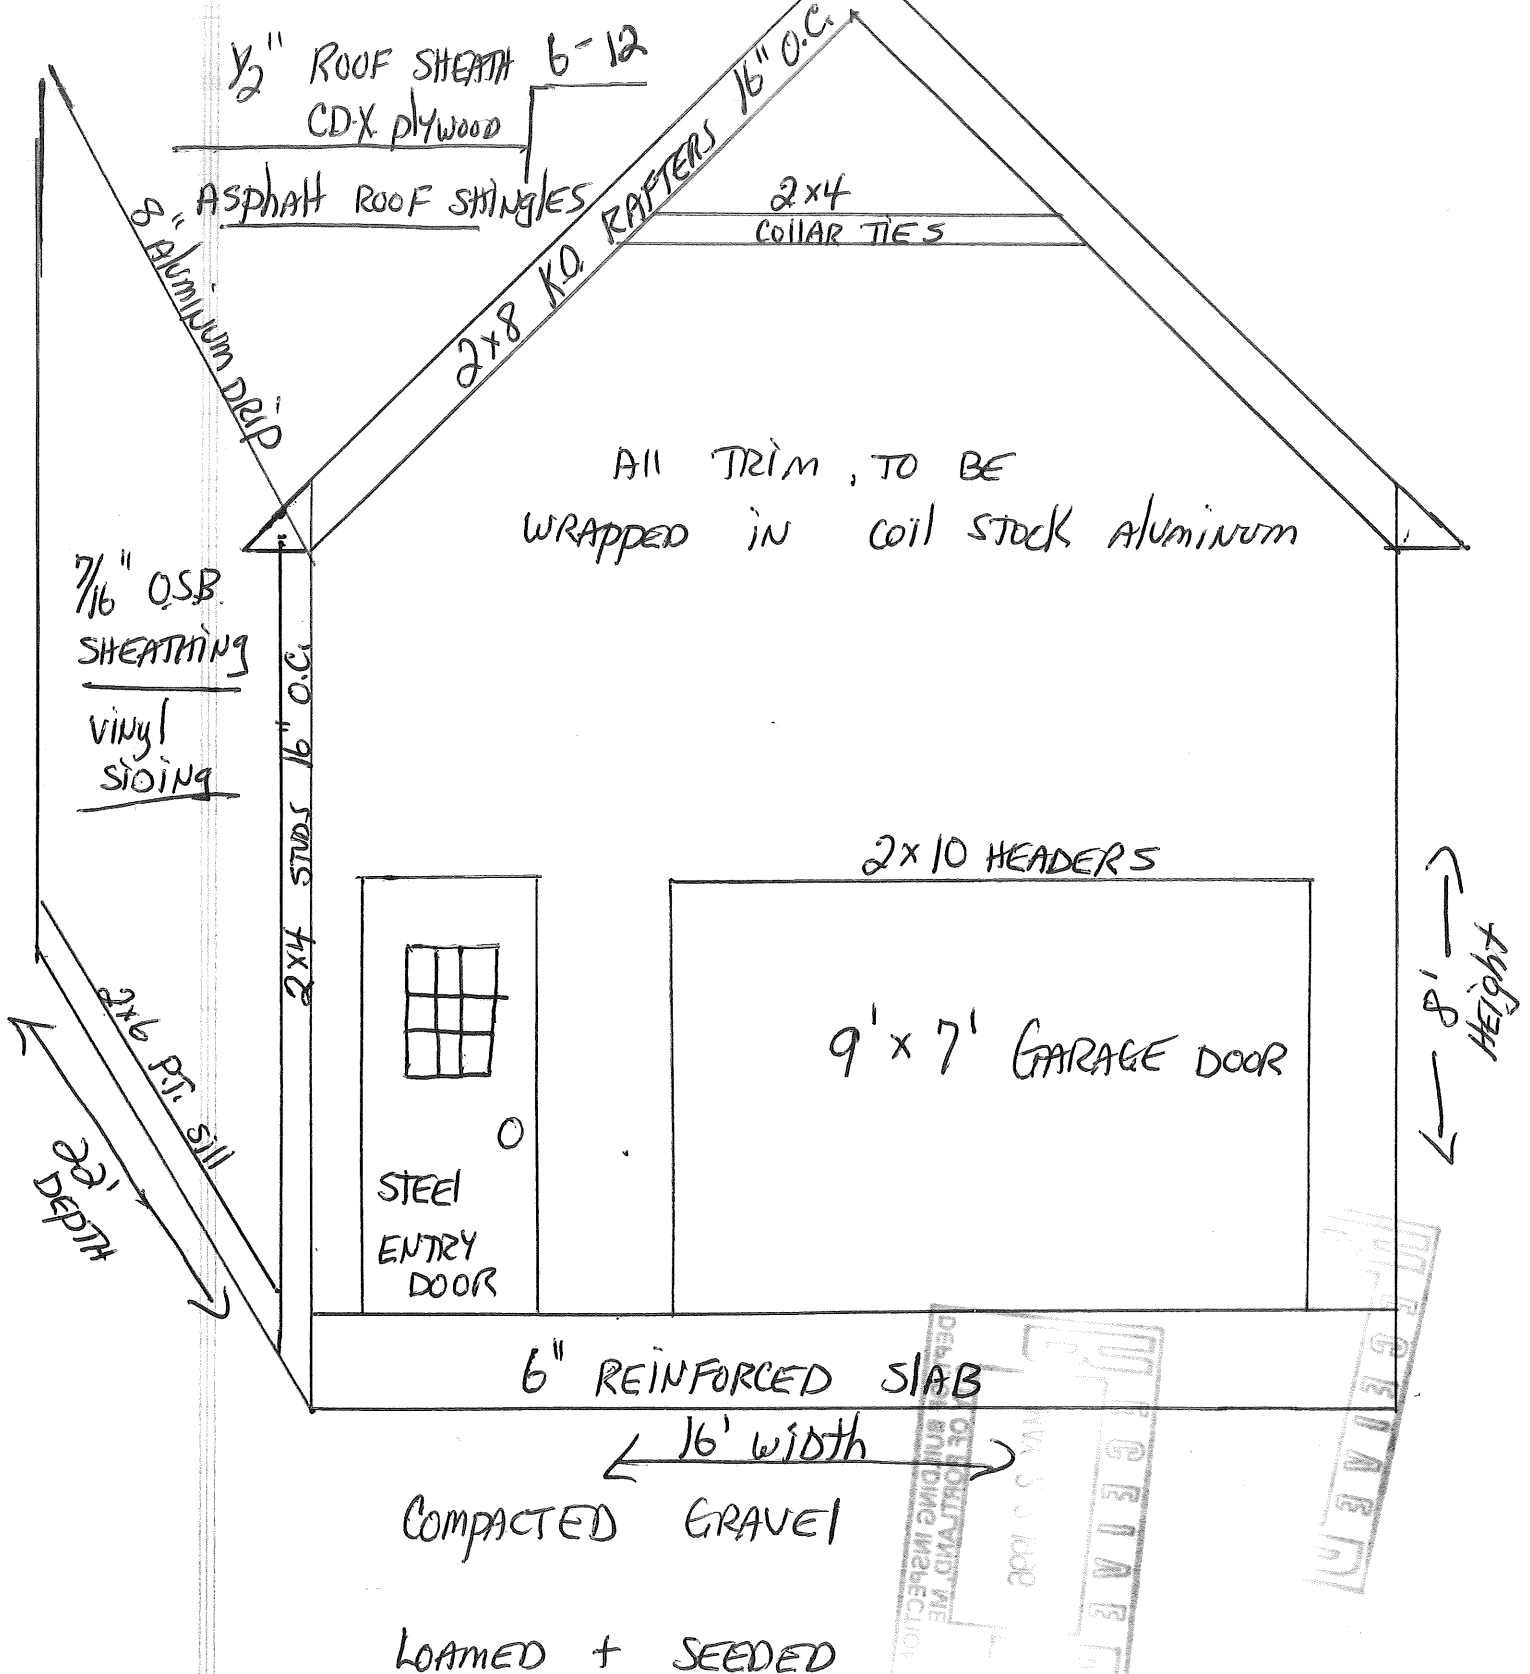 1/2" ROOF SHEATH 6-12
CDX plywood
Asphalt ROOF SHINGLES
8" Aluminum DRIP
2x8 K.D. RAFTERS 16" O.C.
2x4
COllAR TIES
All TRIM, TO BE
WRAPPED IN COIL STOCK AlUMINUM
7/16" O.S.B.
SHEATHING
VINYl
SIDING
2x4 STUDS 16" O.C.
2x10 HEADERS
9' x 7' GARAGE DOOR
8'
HEIGHT
2x6 P.T. Sill
22'
DEPTH
STEEl
ENTRY
DOOR
6" REINFORCED SlAB
16' WIDTH
COMPACTED GRAVEl
LOAMED + SEEDED
RECEIVED
RECEIVED
MAY 1996
OF BUILDING INSPECTION
OF PORTLAND, ME